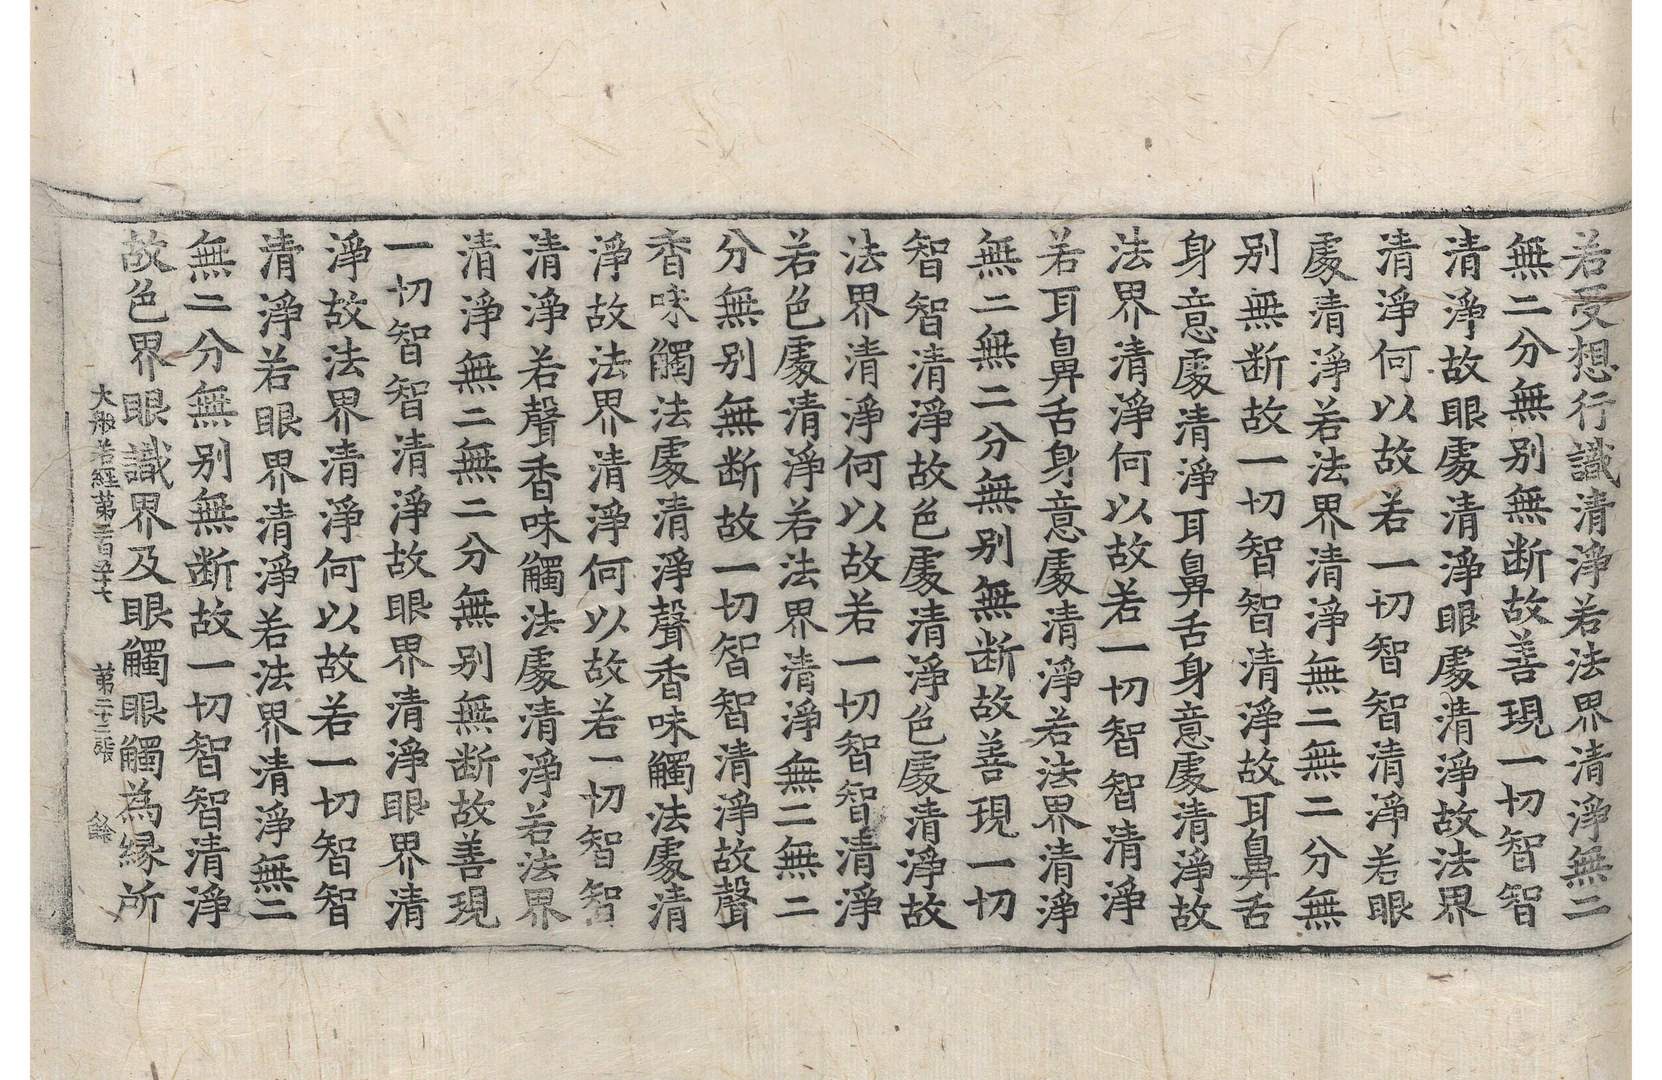 若受想行識清淨若法界清淨無二
無二分無别無断故善現一切智智
清淨故眼處清淨眼處清淨故法界
清淨何以故若一切智智清淨若眼
處清淨若法界清淨無二無二分無
别無断故一切智智清淨故耳鼻舌
身意處清淨耳鼻舌身意處清淨故
法界清淨何以故若一切智智清淨
若耳鼻舌身意處清淨若法界清淨
無二無二分無别無断故善現一切
智智清淨故色處清淨色處清淨故
法界清淨何以故若一切智智清淨
若色處清淨若法界清淨無二無二
分無别無断故一切智智清淨故聲
香味觸法處清淨聲香味觸法處清
淨故法界清淨何以故若一切智智
清淨若聲香味觸法處清淨若法界
清淨無二無二分無别無断故善現
一切智智清淨故眼界清淨眼界清
淨故法界清淨何以故若一切智智
清淨若眼界清淨若法界清淨無二
無二分無别無断故一切智智清淨
故色界眼識界及眼觸眼觸為縁所
大般若經苐二百五十七 苐二十三張 餘